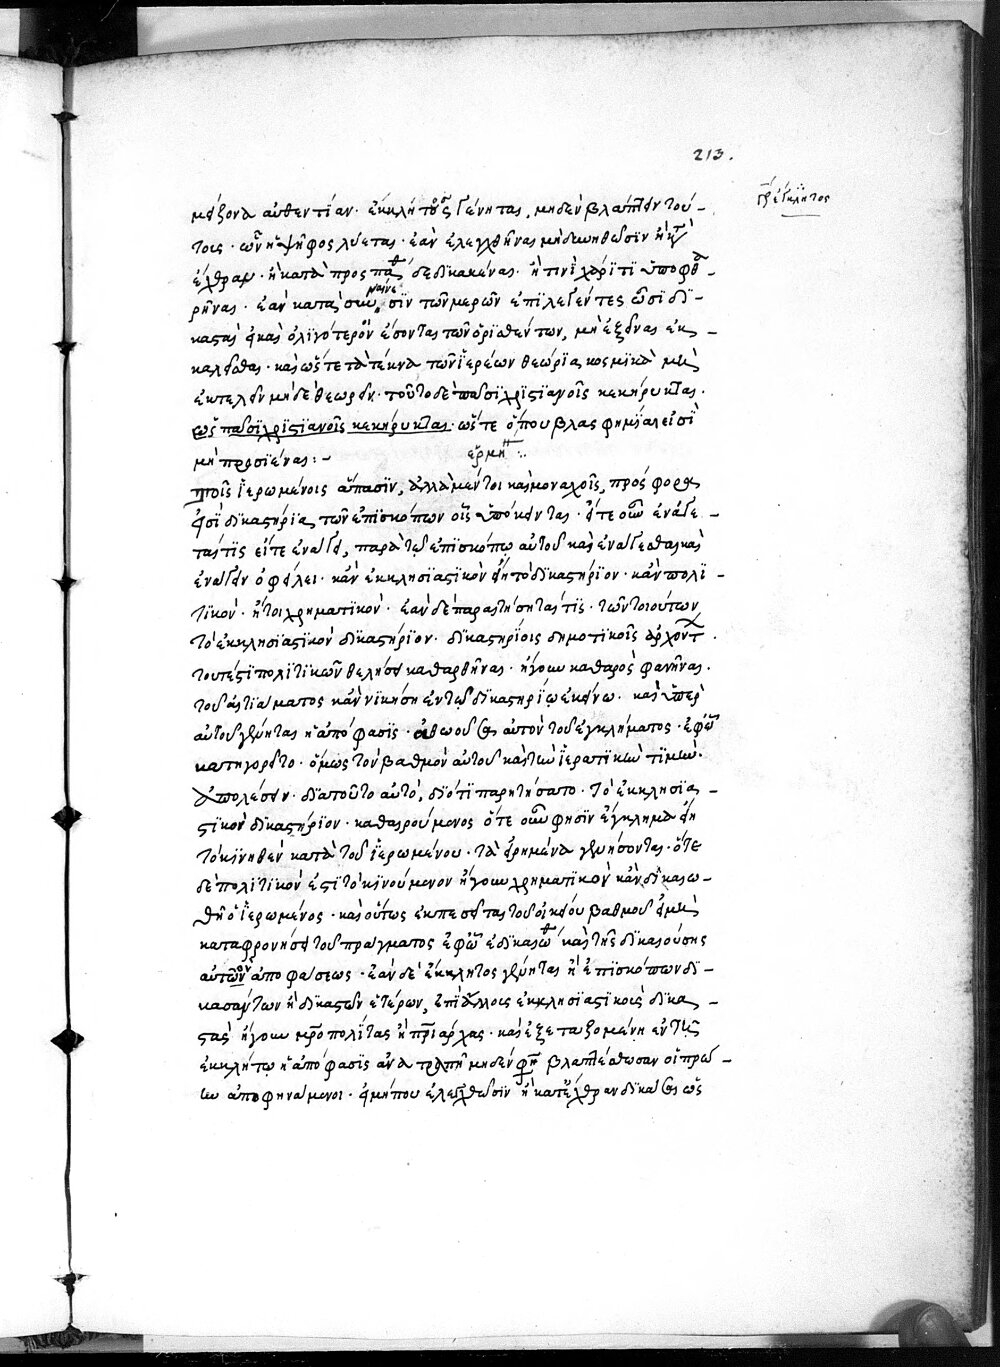 213.
μείζονα αὐθεντίαν· ἐκκλητος γένηται, μηδὲν βλάπτειν τού-
τοις· ὧν ἡ ψῆφος λύεται· ἐὰν ἐλεγχθῆναι μὴ δυνηθῶσιν ἢ κατ'
ἔχθραν· ἢ κατὰ προσπάθ δεδικακέναι· ἢ τινὶ χάριτι ὑποφθα-
ρῆναι· ἐὰν κατὰ συναίνεσιν τῶν μερῶν ἐπιλεγέντες ὦσι δι-
κασταὶ ὀλιγότεροι ἔσονται τῶν ὁρισθέντων, μὴ ἐξεῖναι ἐκ-
καλεῖσθαι· καὶ ὥστε τὰ τέκνα τῶν ἱερέων θεώρια κοσμικὰ μὴ
ἐκτελεῖν μηδὲ θεωρεῖν· τοῦτο δὲ πᾶσι χριστιανοῖς κεκήρυκται·
ὡς πᾶσι χριστιανοῖς κεκήρυκται· ὥστε ὅπου βλασφημίαι εἰσὶ
μὴ προσιέναι:-
ἑρμη
τοῖς ἱερωμένοις ἅπασιν, ἀλλὰ μέντοι καὶ μοναχοῖς, πρόσφορα
εἰσὶ δικαστήρια, τῶν ἐπισκόπων οἷς ὑπόκεινται· εἴτε οὖν ἐνάγε-
ταί τις εἴτε ἐνάγει, παρὰ τῶ ἐπισκόπῳ αὐτοῦ καὶ ἐνάγεσθαι καὶ
ἐνάγειν ὀφείλει· κἂν ἐκκλησιαστικὸν εἴη τὸ δικαστήριον· κἂν πολι-
τικόν· ἤτοι χρηματικόν· ἐὰν δὲ παραιτήσηταί τις· τῶν τοιούτων
τὸ ἐκκλησιαστικὸν δικαστήριον· δικαστηρίοις δημοτικοῖς ἀρχοντ.
τουτέστι πολιτικῶν θελήσει καθαρθῆναι· ἤγουν καθαρὸς φανῆναι·
τοῦ αἰτιάματος κἂν νικήσῃ ἐν τῶ δικαστηρίῳ ἐκείνω· καὶ ὑπὲρ
αὐτοῦ γένηται ἡ ἀπόφασις· ἀθωοῦσα αὐτὸν τοῦ ἐγκλήματος· ἐφ' ὧ
κατηγορεῖτο· ὅμως τὸν βαθμὸν αὐτοῦ καὶ τὴν ἱερατικὴν τιμὴν·
ἀπολέσειν· διὰ τοῦτο αὐτό, διότι παρῃτήσατο· τὸ ἐκκλησια-
στικὸν δικαστήριον· καθαιρούμενος ὅτε οὖν φησὶν ἔγκλημα εἴη
τὸ κινηθὲν κατὰ τοῦ ἱερωμένου· τὰ εἰρημένα γενήσονται· ὅτε
δὲ πολιτικόν ἐστι τὸ κινούμενον ἤγουν χρηματικὸν κἂν δικαιω-
θῆ ὁ ἱερωμένος· καὶ οὕτως ἐκπεσεῖται τοῦ οἰκείου βαθμοῦ εἰ μὴ
καταφρονήσει τοῦ πράγματος ἐφ' ὧ ἐδικαιώθ καὶ τῆς δικαιούσης
αὐτὸν ἀποφάσεως· ἐὰν δὲ ἔκκλητος γένηται ἢ ἐπισκόπων δι-
κασάντων ἢ δικαστῶν ἑτέρων, ἐπὶ ἄλλοις ἐκκλησιαστικοὺς δικα-
στὰς ἤγουν μητροπολίτας ἢ πριάρχας· καὶ ἐξεταζομένη ἐν τῆ
ἐκκλήτω ἡ ἀπόφασις ἀνατραπῆ μηδέν φη βλαπτέσθωσαν οἱ πρώ-
ην ἀποφηνάμενοι· εἰ μήπου ἐλεγχθῶσιν ἢ κατ' ἔχθραν δικάσαντες ὡς